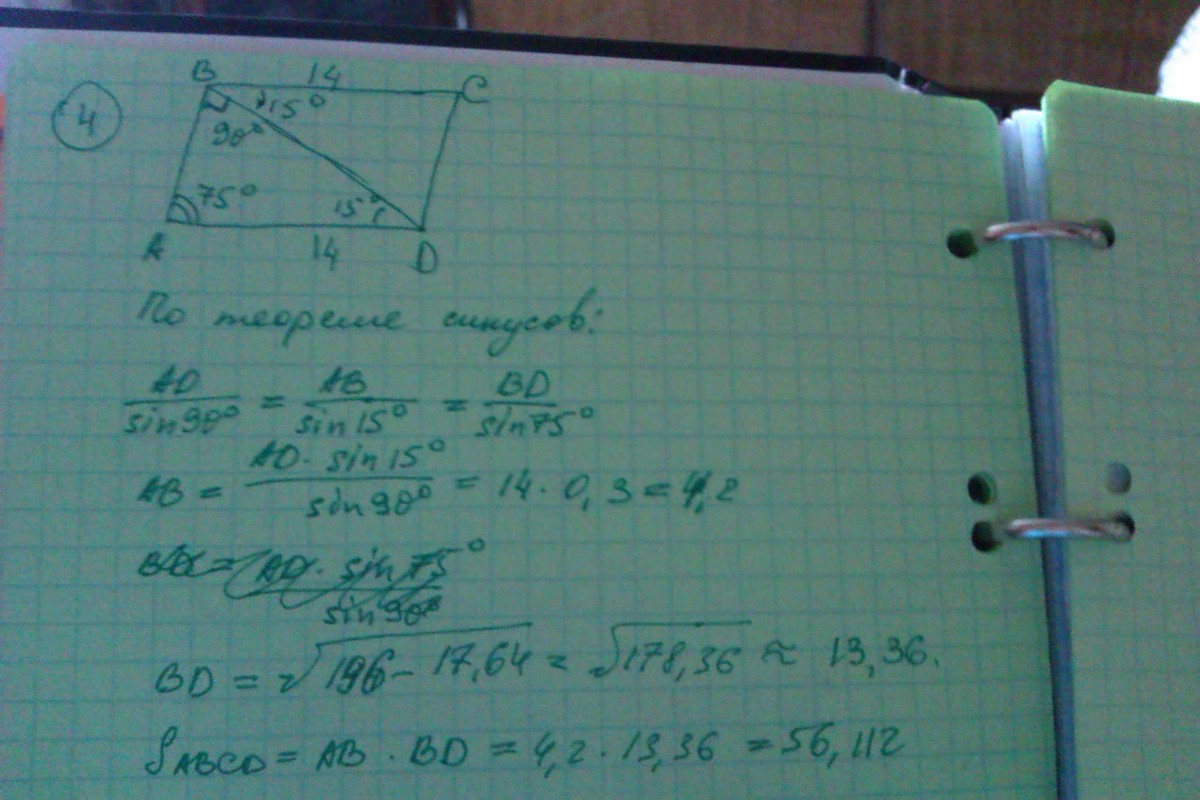 4
B 14 C
15°
90°
75°
15°
A 14 D
По теореме синусов:
AD/sin90° = AB/sin15° = BD/sin75°
AB = AD · sin15°/sin90° = 14 · 0,3 = 4,2
AD · sin75°/sin90°
BD = √196 - 17,64 = √178,36 ≈ 13,36.
SABCD = AB · BD = 4,2 · 13,36 = 56,112